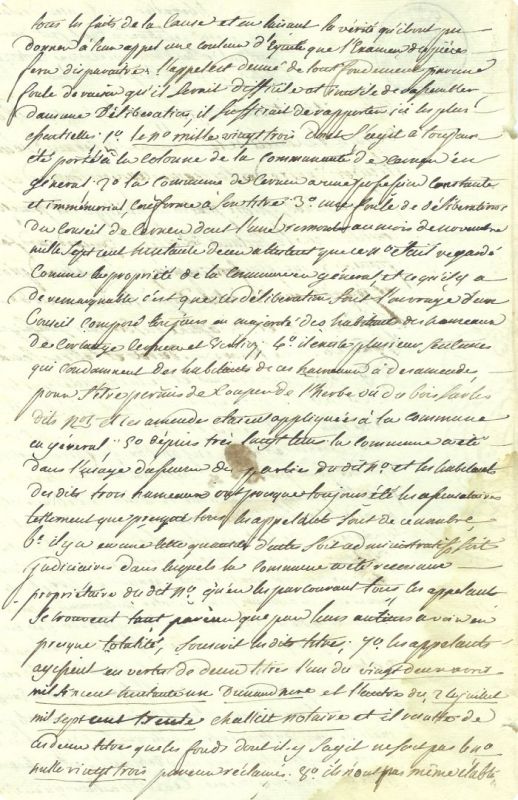 tous les faits de la Cause et en laisant la vérité qu'ils ont pu
donner à leur appel une couleur d'équité que l'Examen des pièces
fera disparaitre. l'appel est denué de tout fondement par une
foule de raisons qu'il serait difficile et inutile de rassembler
dans une Délibération, il suffirait de rapporter ici les plus
essentielles. 1o. le no. mille vingt trois dont s'agit a toujours
été porté à la Colonne de la communauté de en
général. 2o la commune de Cernex a une possession constante
et immémorial, conforme à son titre. 3o. une foule de délibérations
du Conseil de Cernex dont l'une remonte au mois de novembre
mille sept cent attestent que ce no. était regardé
Comme la propriété de la Commune en général, et ce qu'il y a
de remarquable c'est que les délibérations sont l'ouvrage d'un
Conseil composé toujours en majorité des habitants des hameaux
de 4o. il existe plusieurs sentences
qui condamnent des habitants de ces hameaux à des amendes
pour s'être permis de Couper de l'herbe ou du bois sur les
dits nos. et les amendes étaient appliquées à la commune
en général. 5o depuis très longtems la commune a été
dans l'usage d'affermer des partie du dit no. et les habitants
des dits trois hameaux ont presque toujours été les
tellement que presque tous les appelants sont de ce nombre
6o. il y a eu une telle quantité d'actes soit administratifs soit
judiciaires dans lesquels la Commune a été reconnue
propriétaire du dit no. qu'en les parcourant tous les appelants
se trouvent tant par eux que par leurs auteurs avoir en
presque totalité, souscrit les dits titres; 7o. les appelants
agissent en vertu de deux titres l'un du vingt deux avril
mil et l'autre du 24 juillet
mil sept cent trente notaire et il résulte de
ces deux titres que les fonds dont il s'y agit ne sont pas le no.
mille vingt trois par eux réclamé. 8o. ils n'ont pas même établi